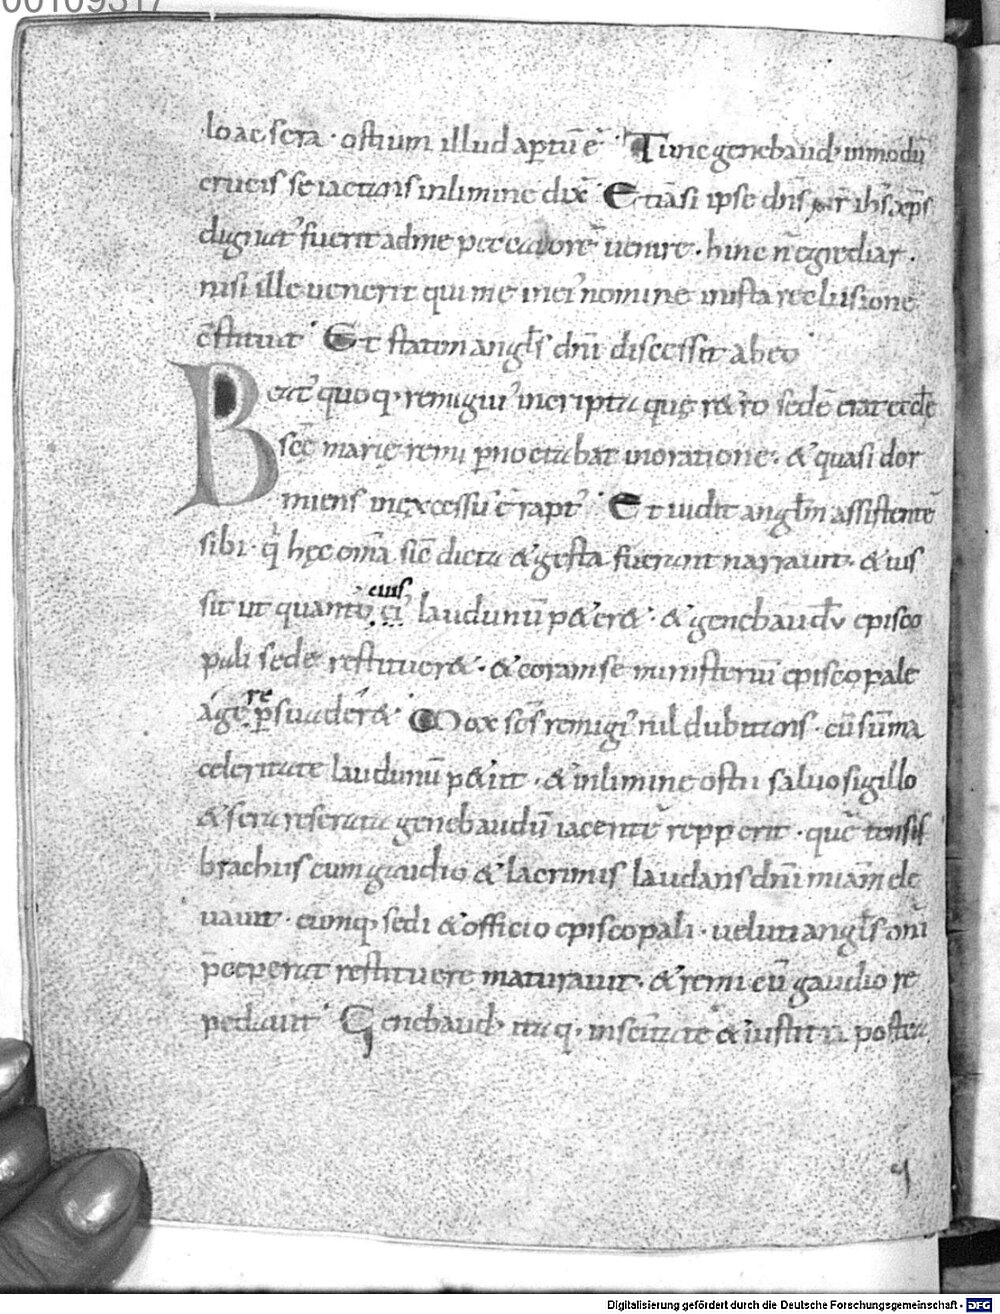 00109317
lo ac sera · ostium illud aptū ē · Tunc genebaud, inmodū
crucis se iactans inlimine dix̄ · Etiāsi ipse dn̄s ih̄s xp̄s
dignat᷒ fuerit adme peccatorē uenire · hinc n̄ egrediar ·
nisi ille uenerit qui me inei᷒ nomine inista reclusione
c̄stituit · Et statim angl̄s dn̄i discessit abeo
Beat᷒ quoq, remigiu᷒ incripta quę retro sedē erat eccl̄e
scē marię remi p̄noctabat inoratione · & quasi dor
miens inexcessu ē rapt᷒ · Et uidit angl̄m assistentē
sibi · q̄ hęc om̄a sic dicta & gesta fuerant narrauit · & ius
eius
sit ut quanto ci᷒ laudunū p&er& · & genebaudū episco
pali sede restituer& · & coram se ministeriū episcopale
re
agē p̄suader& · Mox sc̄s remigi᷒ nil dubitans · cū sūma
celeritate laudunū p&iit · & inlimine ostii saluo sigillo
& sera reserata genebaudū iacentē repperit · quē tensis
brachiis cum gaudio & lacrimis laudans dn̄i mi̅am ele
uauit · eumq, sedi & officio episcopali · ueluti angl̄s om̄i
p̄ceperat restituere maturauit · & remi cū gaudio re
pedauit · Genebaud, itaq, insc̄itate & iustitia postea
Digitalisierung gefördert durch die Deutsche Forschungsgemeinschaft - DFG